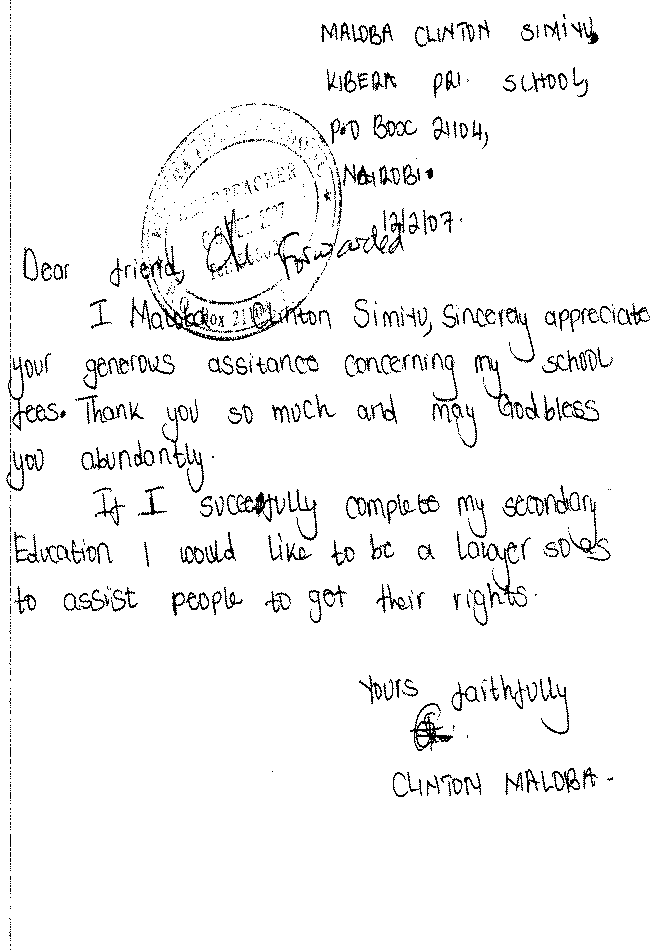 MALOBA CLINTON SIMIYU,
KIBERA PRI. SCHOOL,
P.O BOX 21104,
NAIROBI.
12/2/07.
HEADTEACHER
Forwarded
Dear friend,
I Maloba Clinton Simiyu, Sincerely appreciate
your generous assitance concerning my school
fees. Thank you so much and may God bless
you abundantly.
If I succesfully complete my secondary
Education I would like to be a lawyer so as
to assist people to get their rights.
Yours faithfully
CLINTON MALOBA.